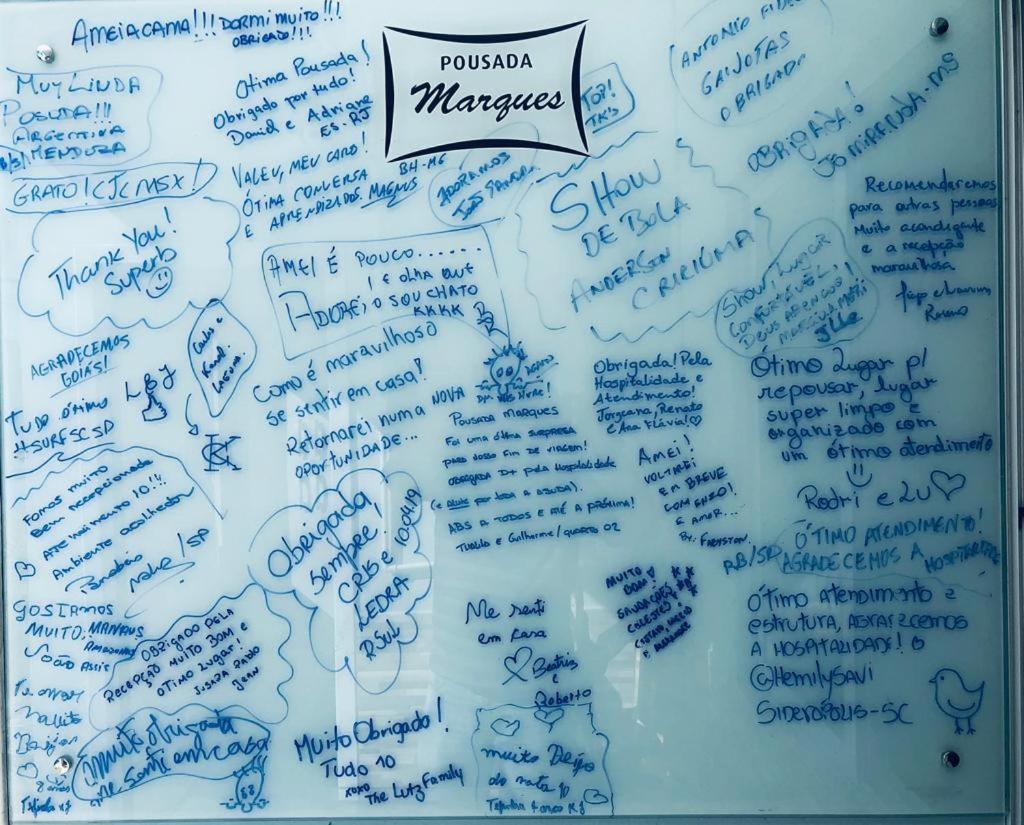 AMEI A CAMA!!! DORMI MUITO!!!
OBRIGADO!!!
POUSADA
Marques
MUY LINDA
POSADA!!!
ARGENTINA
MENDOZA
GRATO! CJC MSX!
Otima Pousada!
Obrigado por tudo!
David e Adriane
ES-RJ
VALEU, MEU CARO!
ÓTIMA CONVERSA
E APRENDIZADOS. MAGNUS
BH-MG
TOP!
ADORAMOS
ANTONIO
GAIJOTAS
OBRIGADO
OBRIGADA!
JO MIRANDA-MS
SHOW
DE BOLA
ANDERSON
CRICIÚMA
Recomendaremos
para outras pessoas
Muito aconchegante
e a recepção
maravilhosa
Thank You!
Superb
AMEI É POUCO......
! E OLHA QUE
ADOREI, O SOU CHATO
KKKK
SHOW! LUGAR
CONFORTÁVEL,
DEUS ABENÇOE
Jlle
AGRADECEMOS
GOIÁS!
L&J
Carlos e
LAGUNA
TUDO ótimo
#SURFSCSP
Como é maravilhoso
se sentir em casa!
Retornarei numa NOVA
OPORTUNIDADE...
POUSADA MARQUES
FOI UMA ótima SURPRESA
PARA NOSSO FIM DE VIAGEM!
OBRIGADA D+ pela Hospitalidade
(e ALINE por toda A AJUDA).
ABS A TODOS E ATÉ A PRÓXIMA!
TUALDO E Guilherme/QUARTO 02
Obrigada! Pela
Hospitalidade e
Atendimento!
Jorgeana, Renato
e Ana Flávia!
AMEI!
VOLTAREI
EM BREVE
COM ENZO!
E AMOR...
Ótimo Lugar p/
repousar, lugar
super limpo e
organizado com
um ótimo atendimento
Rodri e Lu
ÓTIMO ATENDIMENTO!
RB/SP AGRADECEMOS A
Fomos muito
bem recepcionados
Atendimento 10!!
Ambiente acolhedor
/SP
Obrigada
sempre!
CRIS e
LEDRA
RSUL
10/04/19
GOSTAMOS
MUITO, MANAUS
AMAZONAS
João Assis
OBRIGADO PELA
RECEPÇÃO MUITO BOM E
OTIMO LUGAR!
Me senti
em casa
Beatriz
e
Roberto
MUITO
BOM!
SAUDAÇÕES
CELESTES!
Ótimo Atendimento e
estrutura, AGRADECEMOS
A HOSPITALIDADE!
@HemilySavi
SIDERÓPOLIS-SC
Muito obrigada
me senti em casa
Muito Obrigado!
Tudo 10
xoxo
The Lutz Family
muito Beijo
da nata 10